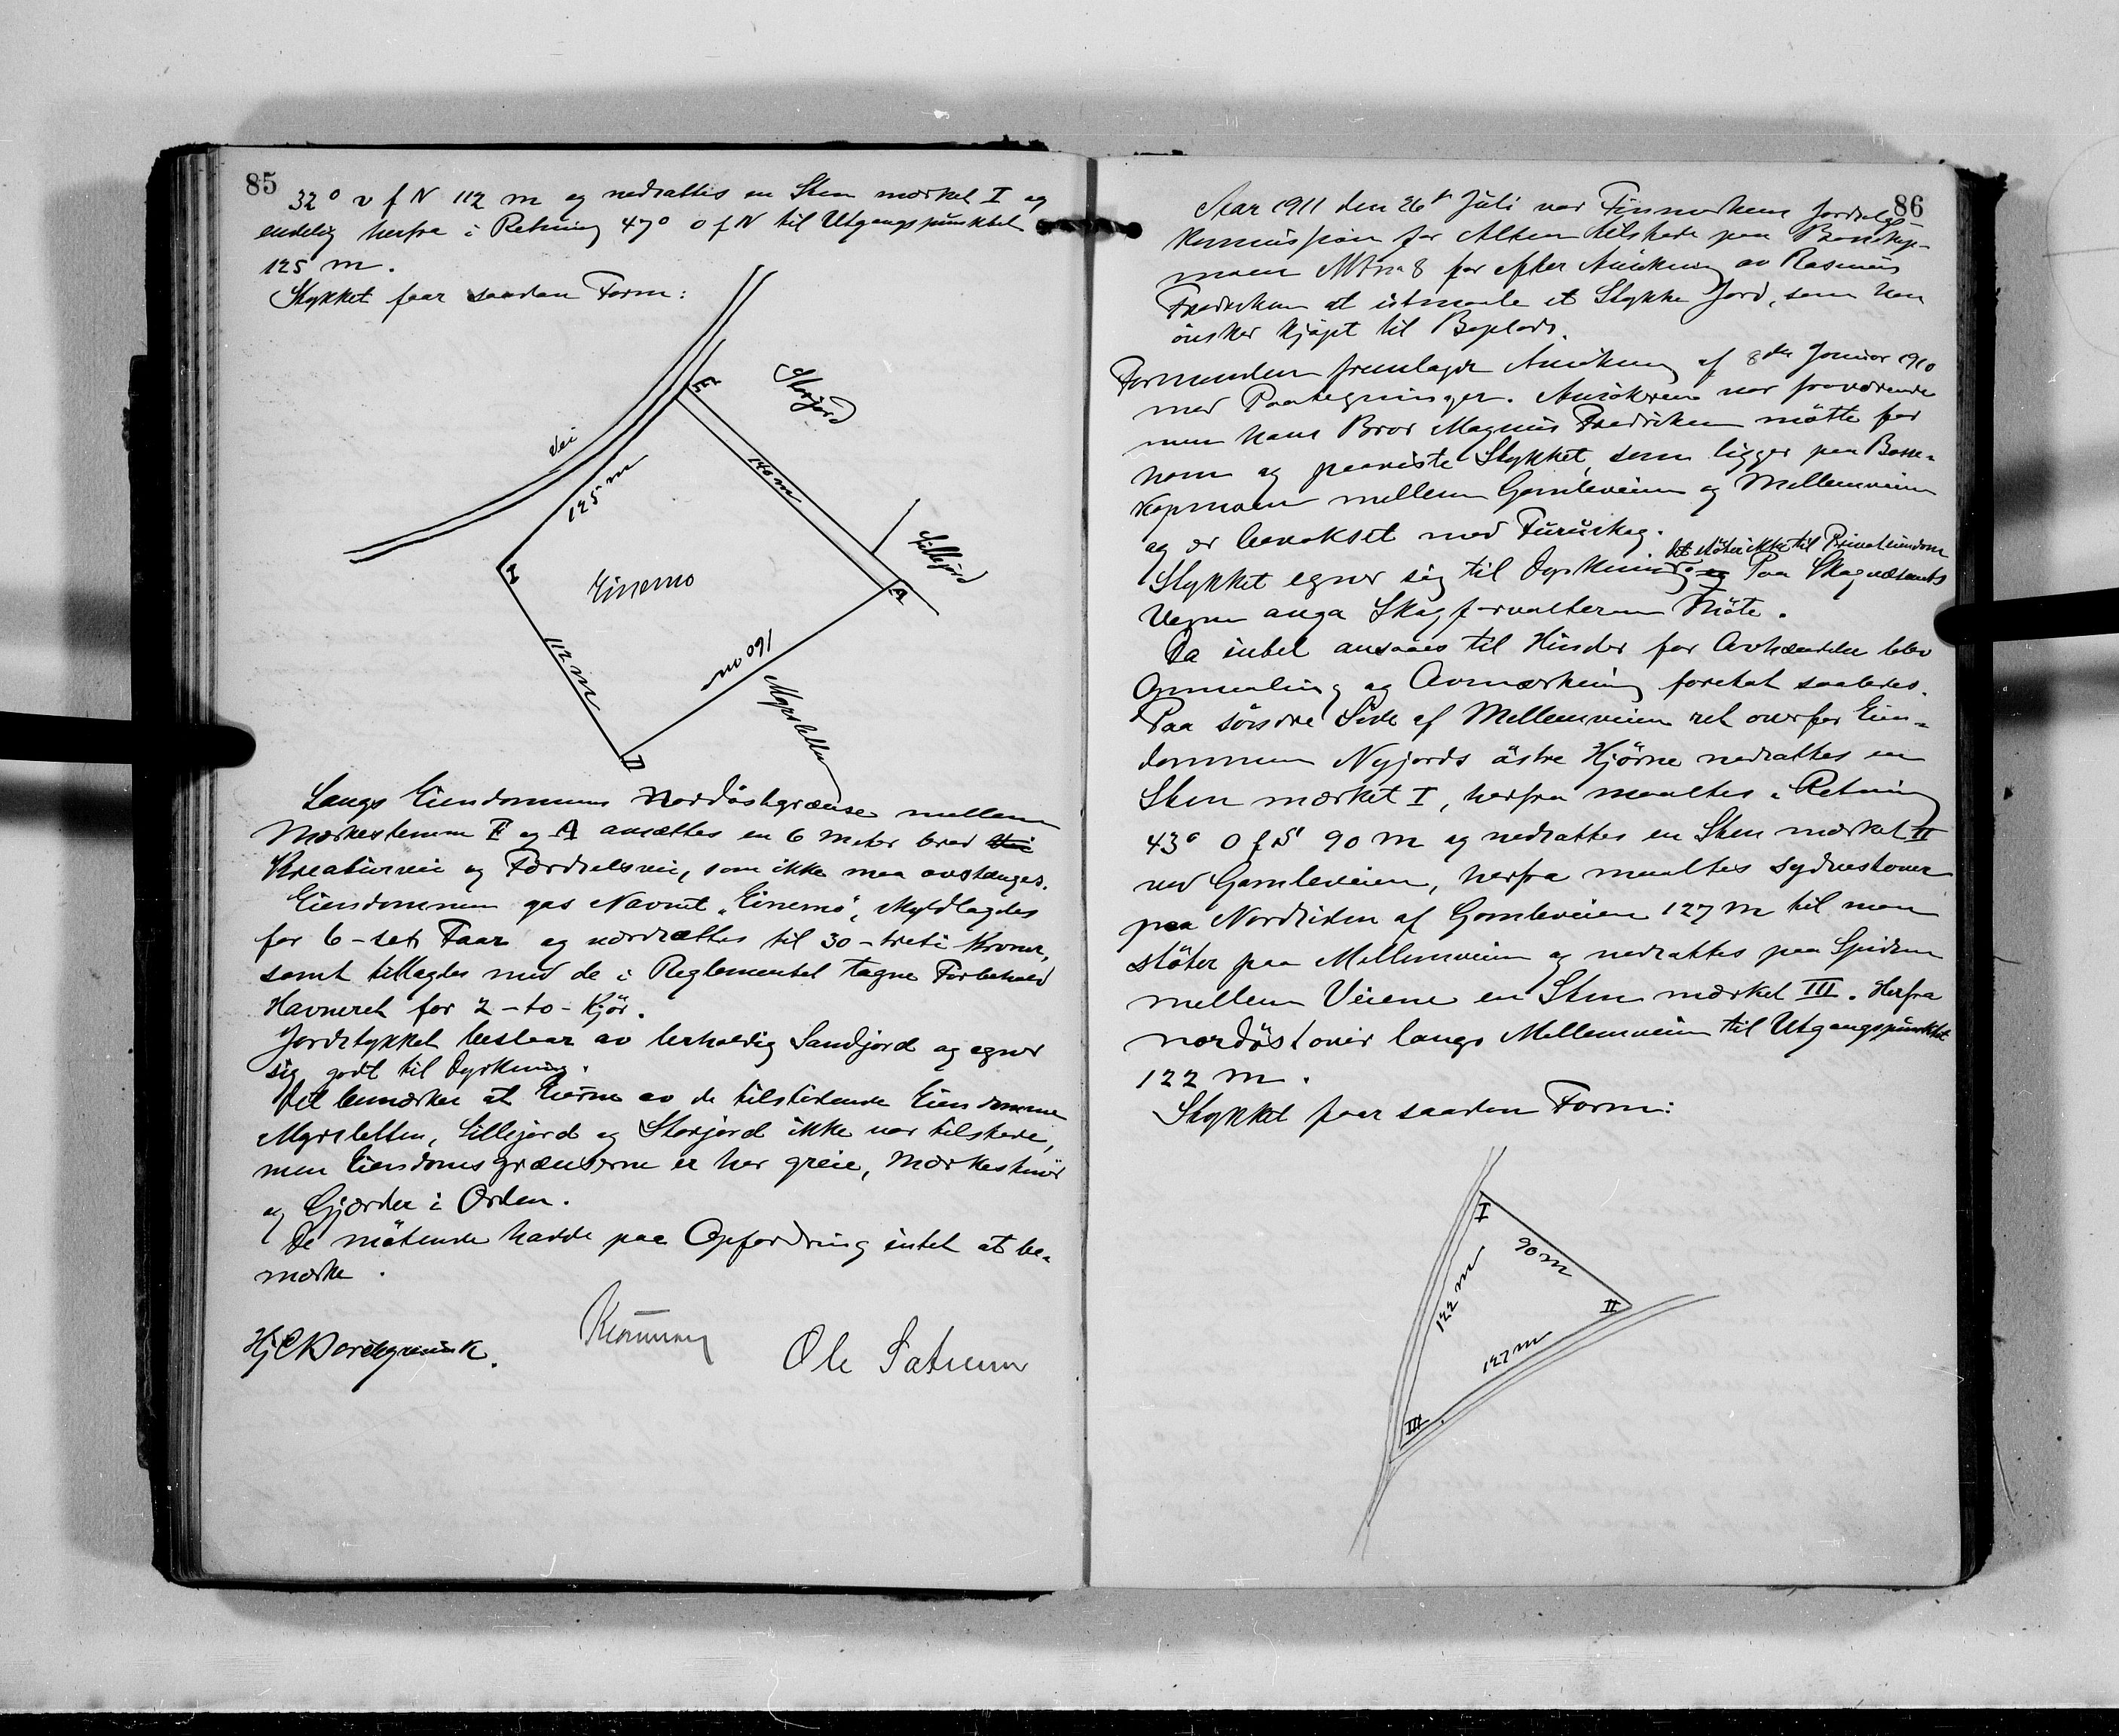 85
32° v f N 112 m og nedsattes en Sten mærket I og
endelig herfra i Retning 47° o f N til Utgangspunktet
125 m.
Stykket faar saadan Form:
Storjord
Vei
125 m
140 m
Lillejord
Einemo
A
112 m
160 m
Myrsletten
II
Langs Eiendommens Nordöstgrænse mellem
Mærkestenene E og A avsættes en 6 meter bred Vei
Kreaturvei og Færdselsvei, som ikke maa avstænges.
Eiendommen gas Navnet „Einemo“, skyldlagdes
for 6 - seks Faar og værdsættes til 30 - treti Kroner,
samt tillagdes med de i Reglementet tagne Forbehold
Havneret for 2 - to - Kjör.
Jordstykket bestaar av lerholdig Sandjord og egner
sig godt til Dyrkning.
Det bemærkes at Eierne av de tilstötende Eiendomme
Myrsletten, Lillejord og Storjord ikke var tilstede,
men Eiendomsgrænserne er her greie, Mærkestener
og Gjærder i Orden.
De mötende hadde paa Opfordring intet at be-
mærke.
Ole Sætrum
86
Aar 1911 den 26de Juli var Finmarkens Jordsalgs-
kommission for Alten tilstede paa Bossekop-
moen M No 8 for efter Ansökning av Rasmus
Fredriksen at utmaale et Stykke Jord, som han
önsker kjöpt til Boplads.
Formanden fremlagde Ansökning af 8de Januar 1910
med Paategninger. Ansökeren var fraværende
men hans Bror Magnus Fredriksen mötte for
ham og paaviste Stykket, som ligger paa Bosse-
kopmoen mellem Gamleveien og Mellemveien
og er bevokset med Furuskog.
det stöter ikke til Privateiendom
Stykket egner sig til Dyrkning og Paa Skogvæsenets
Vegne anga Skogforvalteren Möte.
Da intet ansaaes til Hinder for Avhændelse blev
Opmaaling og Avmærkning foretat saaledes.
Paa söndre Side af Mellemveien ret overfor Eien-
dommen Nyjords östre Hjörne nedsattes en
Sten mærket I, herfra maaltes i Retning
43° O f S 90 m og nedsattes en Sten mærket II
ved Gamleveien, herfra maaltes sydvestover
paa Nordsiden af Gamleveien 127 m til man
stöter paa Mellemveien og nedsattes paa Spidsen
mellem Veiene en Sten mærket III. Herfra
nordöstover langs Mellemveien til Utgangspunktet
122 m.
Stykket faar saadan Form:
I
90 m
122 m
II
127 m
III